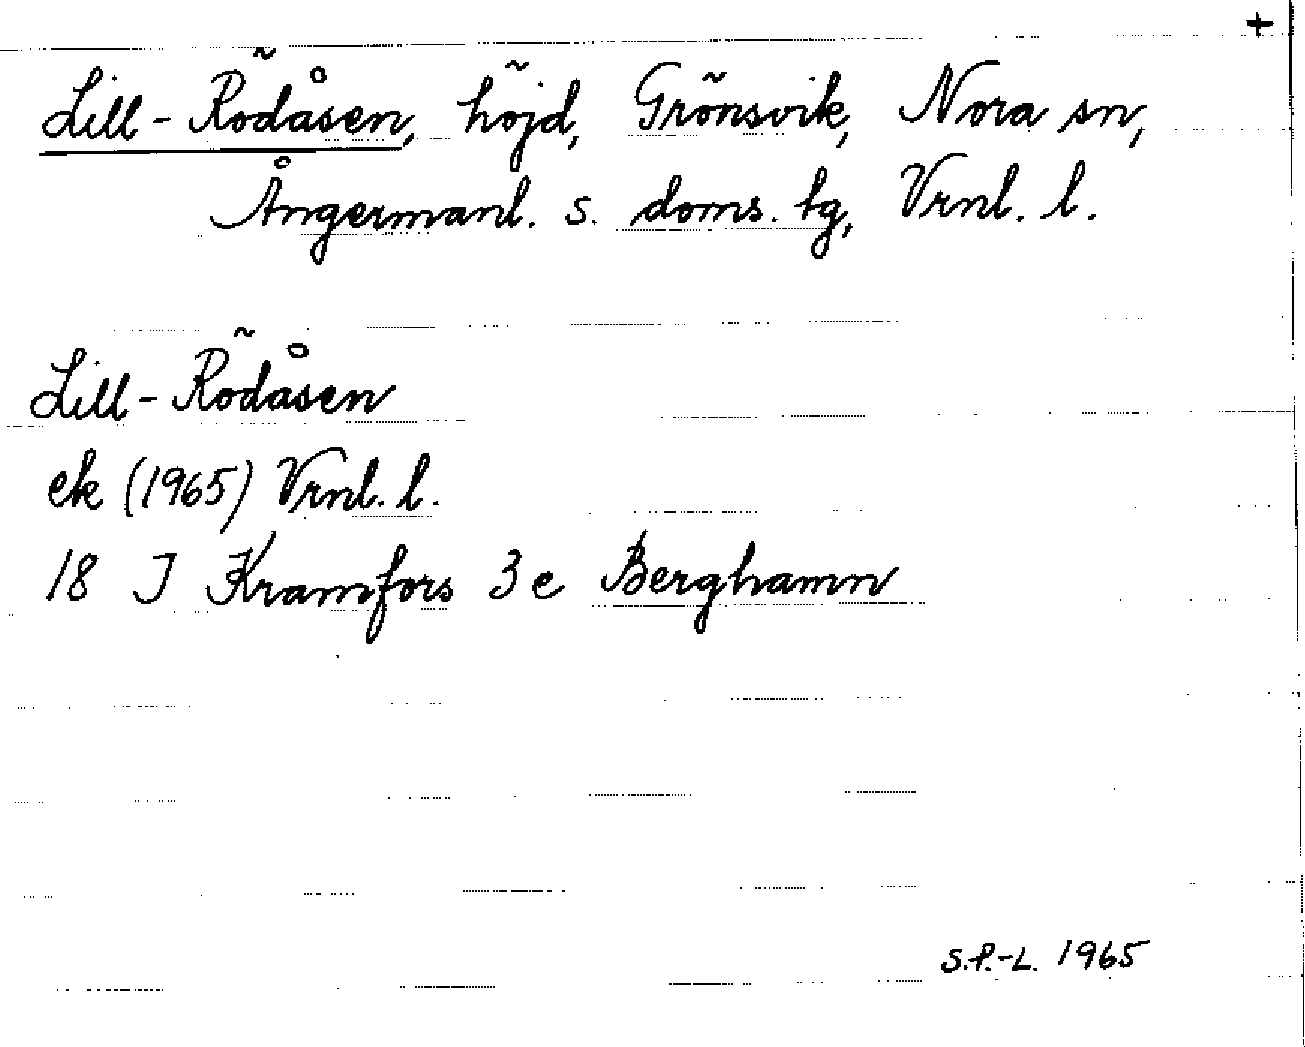 +
Lill-Rödåsen, höjd, Grönsvik, Nora sn,
Ångermanl. s. doms. tg, Vrnl. l.
Lill-Rödåsen
ek (1965) Vrnl. l.
18 J Kramfors 3e Berghamn
S.P.-L. 1965